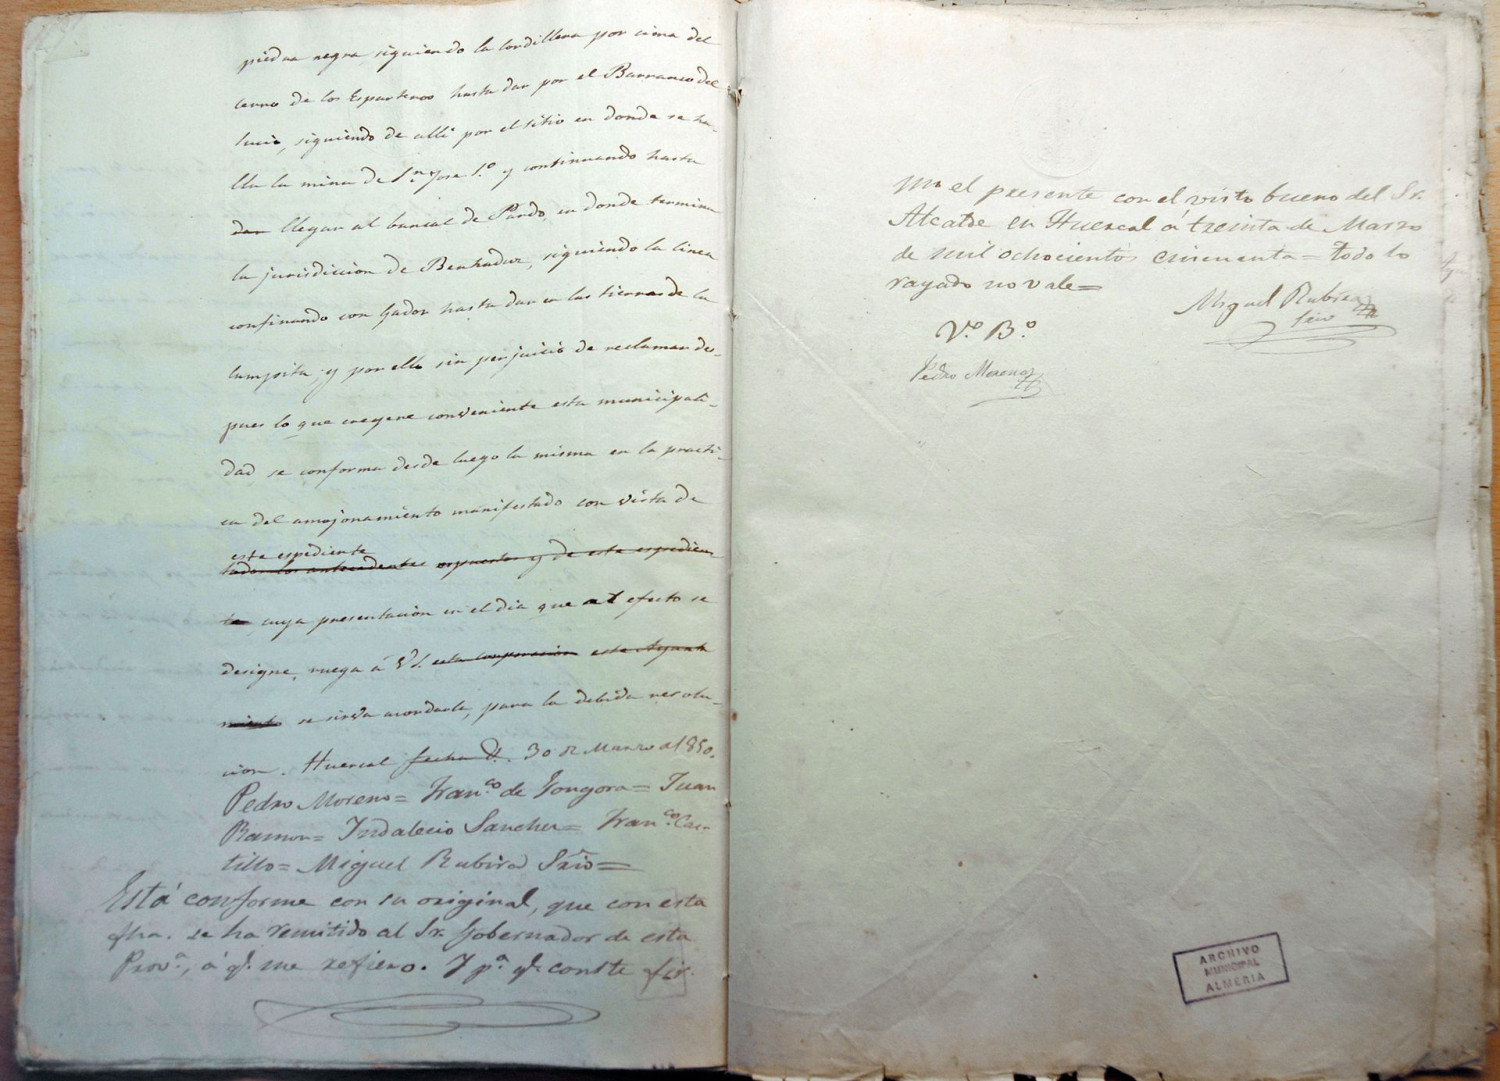 piedra negra siguiendo la cordillera por cima del
cerro de los Esparteros hasta dar por el Barranco del
lucio, siguiendo de alli por el sitio en donde se ha-
lla la mina de Sn. Jose 1.º y continuando hasta
dar llegar al bancal de Pardo, en donde termina
la jurisdiccion de Benhadux, siguiendo la linea
confinando con Gador hasta dar en las tierras de la
y por ello sin perjuicio de reclamar des-
pues lo que creyere conveniente esta municipali-
dad se conforma desde luego la misma en la practi-
ca del amojonamiento manifestado con vista de
este espediente
todos los antecedentes espuestos y de este espedien-
te cuya presentacion en el dia que al efecto se
designe, ruega á V.S. esta Corporacion este Ayunta
miento se sirva acordarla, para la debida resolu-
cion. Huercal fecha 30 de Marzo de 1850.
Pedro Moreno= Franco. de Gongora= Juan
Ramon= Indalecio Sanchez= Franco. Cas-
tillo= Miguel Rubira Srio=
Está conforme con su original, que con esta
fha. se ha remitido al Sr. Gobernador de esta
Prova., á q.e me refiero. Y pa. q.e conste fir-
mo el presente con el visto bueno del Sr.
Alcalde en Huercal á treinta de Marzo
de mil ochocientos cincuenta= todo lo
rayado no vale=
Miguel Rubira
Srio
V.º B.º
Pedro Moreno
ARCHIVO
MUNICIPAL
ALMERIA